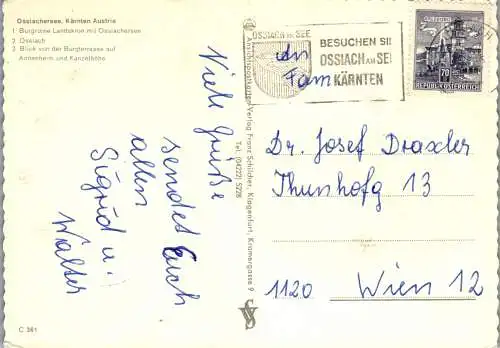 Ossiachersee, Kärnten Austria
1 Burgruine Landskron mit Ossiachersee
2 Ossiach
3 Blick von der Burgterrasse auf
Annenheim und Kanzelhöhe
Viele Grüße
sendet Euch
allen
Sigrid u.
Walter
C 361
Ansichtspostkarten-Verlag Franz Schilcher, Klagenfurt, Kramergasse 9
Tel. (04222) 5228
OSSIACH AM SEE
BESUCHEN SIE
OSSIACH AM SEE
KÄRNTEN
70
REPUBLIK ÖSTERREICH
An
Fam
Dr. Josef Draxler
Thunhofg 13
1120 Wien 12